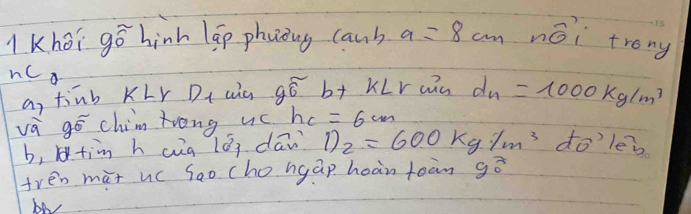 1 Khối gỗ hình lập phương cạnh a = 8 cm nổi trong
nc
a, tính KLr D1 của gỗ bt KLr của dn = 1000 Kg/m³
và gỗ chìm trong nc hc = 6 cm
b, tìm h của lớp dầu D2 = 600 Kg/m³ đổ lên
trên mặt nc sao cho ngập hoàn toàn gỗ